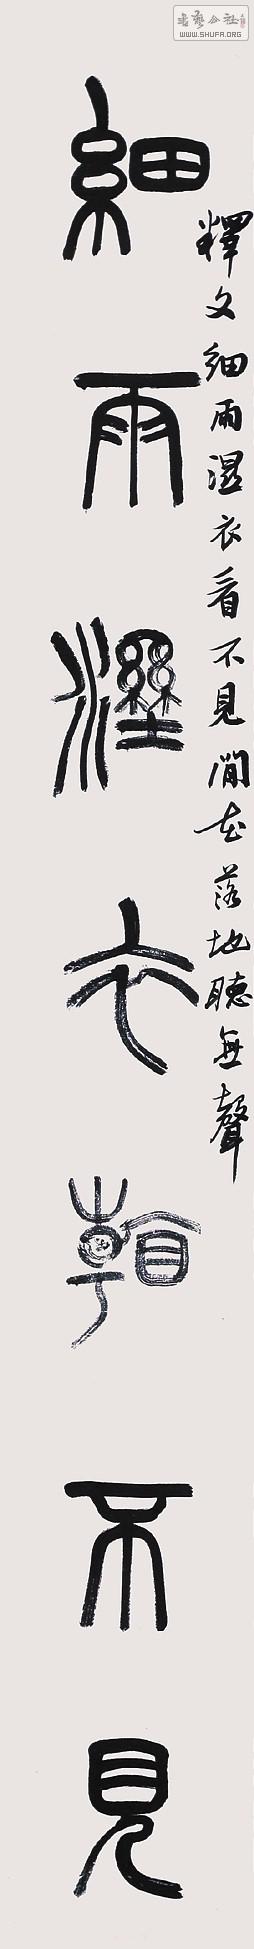 書藝公社
WWW.SHUFA.ORG
釋文細雨濕衣看不見閒花落地聽無聲
細雨溼衣看不見